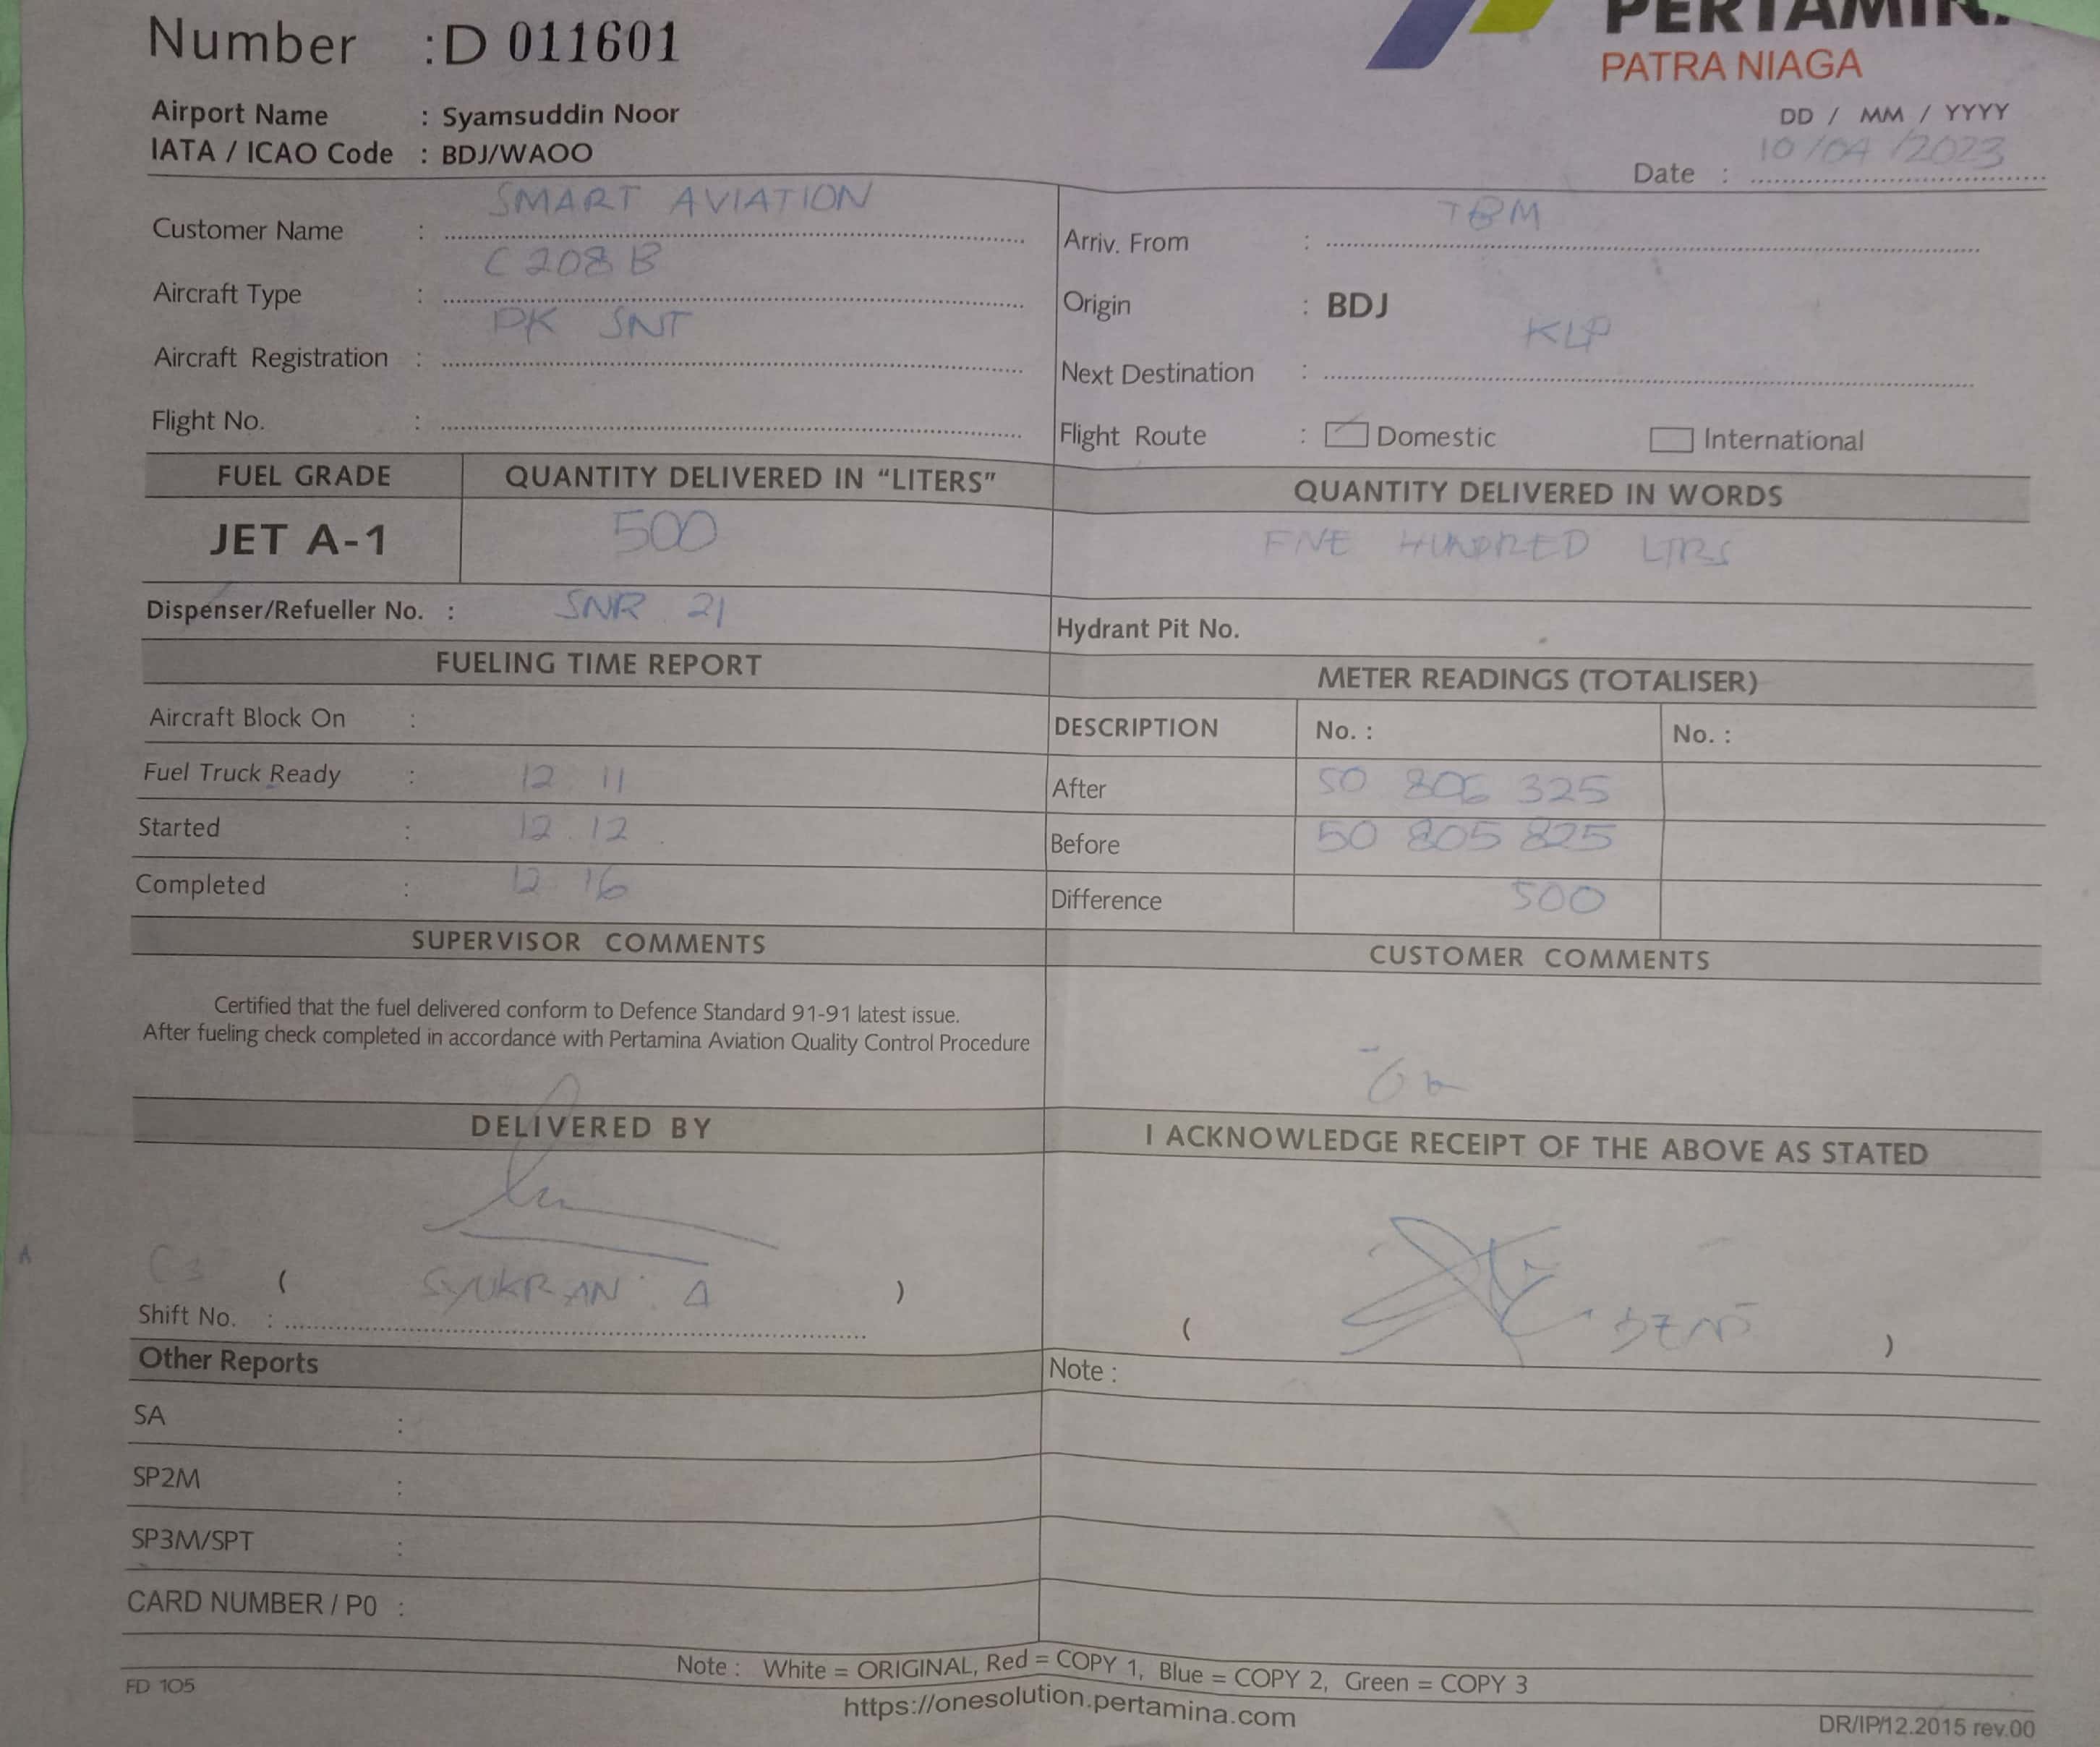 Number : D 011601
PERTAMINA
PATRA NIAGA
Airport Name : Syamsuddin Noor
IATA / ICAO Code : BDJ/WAOO
DD / MM / YYYY
Date : 10/04/2023
Customer Name : SMART AVIATION
Aircraft Type : C 208 B
Aircraft Registration : PK SNT
Flight No. :
Arriv. From : TBM
Origin : BDJ
Next Destination : KLP
Flight Route : Domestic International
FUEL GRADE QUANTITY DELIVERED IN “LITERS” QUANTITY DELIVERED IN WORDS
JET A-1 500 FIVE HUNDRED LTRS
Dispenser/Refueller No. : SNR 21
Hydrant Pit No.
FUELING TIME REPORT
Aircraft Block On :
Fuel Truck Ready : 12 11
Started : 12.12
Completed : 12 16
METER READINGS (TOTALISER)
DESCRIPTION No. : No. :
After 50 806 325
Before 50 805 825
Difference 500
SUPERVISOR COMMENTS
Certified that the fuel delivered conform to Defence Standard 91-91 latest issue.
After fueling check completed in accordance with Pertamina Aviation Quality Control Procedure
CUSTOMER COMMENTS
DELIVERED BY
C3 ( SYUKRAN . A )
Shift No. :
I ACKNOWLEDGE RECEIPT OF THE ABOVE AS STATED
( )
Other Reports
SA :
SP2M :
SP3M/SPT :
CARD NUMBER / P0 :
Note :
Note : White = ORIGINAL, Red = COPY 1, Blue = COPY 2, Green = COPY 3
FD 105
https://onesolution.pertamina.com
DR/IP/12.2015 rev.00